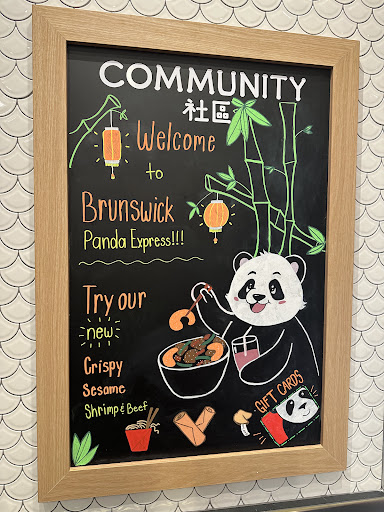 COMMUNITY
社區
Welcome
to
Brunswick
Panda Express!!!
Try our
new
Crispy
Sesame
Shrimp & Beef
GIFT CARDS